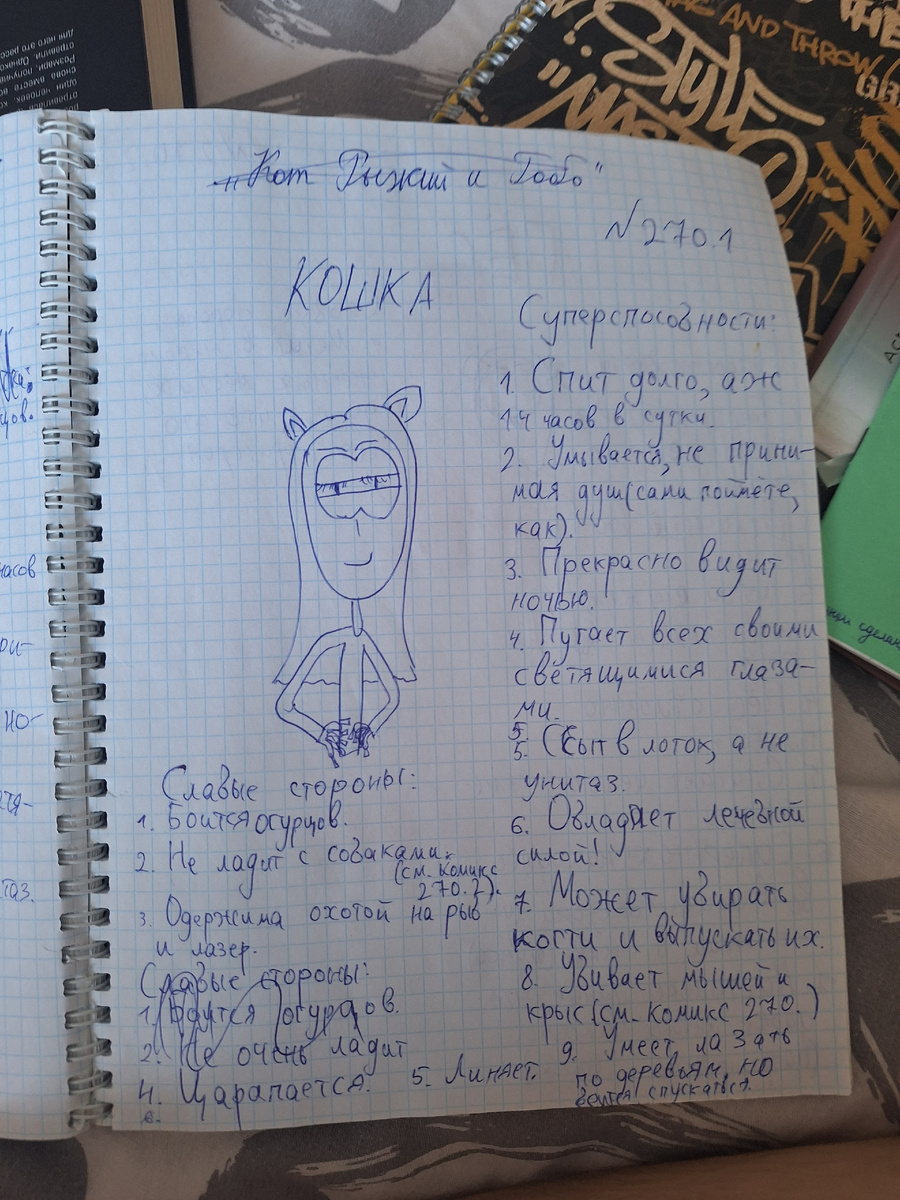 "Кот Рыжий и Бобо"
N270.1
КОШКА
Суперспособности:
1. Спит долго, аж
14 часов в сутки.
2. Умывается, не прини-
мая душ(сами поймёте,
как).
3. Прекрасно видит
ночью.
4. Пугает всех своими
светящимися глаза-
ми.
5.
5. Ссыт в лоток, а не
унитаз.
6. Овладяет лечебной
силой!
7. Может убирать
кости и выпускать их.
8. Убивает мышей и
крыс(см. комикс 270.)
9. Умеет лазать
по деревьям, но
боится спускаться.
Слабые стороны:
1. Боится огурцов.
2. Не ладит с собаками.
(см. комикс
270.2).
3. Одержима охотой на рыб
и лазер.
Слабые стороны:
1. Боится огурцов.
2. Не очень ладит
4. Царапается.
5. Линяет.
6.
STYLE
AND THROW
THE
цов.
часов
ри-
но-
тя-
таз.